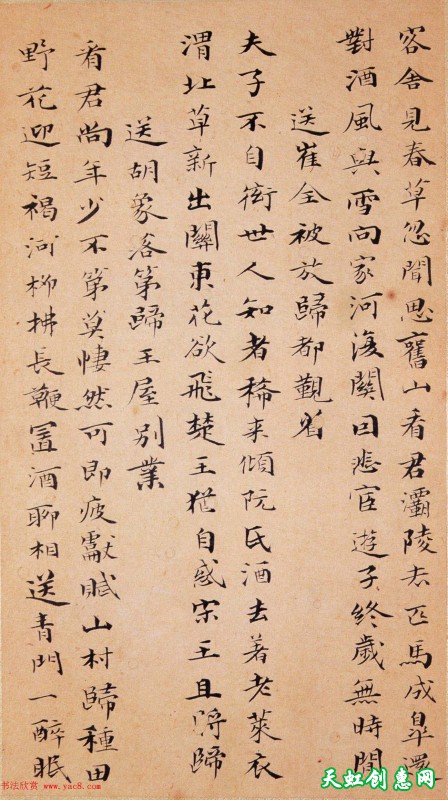 客舍見春草忽聞思舊山看君灞陵去匹馬成皋還
對酒風與雪向家河復關因悲宦遊子終歲無時閒
送崔全被放歸都覲省
夫子不自衒世人知者稀来傾阮氏酒去著老萊衣
渭北草新出關東花欲飛楚王猶自惑宋玉且將歸
送胡象落第歸王屋別業
看君尚年少不第莫悽然可即疲獻賦山村歸種田
野花迎短褐河柳拂長鞭置酒聊相送青門一醉眠
书法欣赏 www.yac8.com
天虹创意网